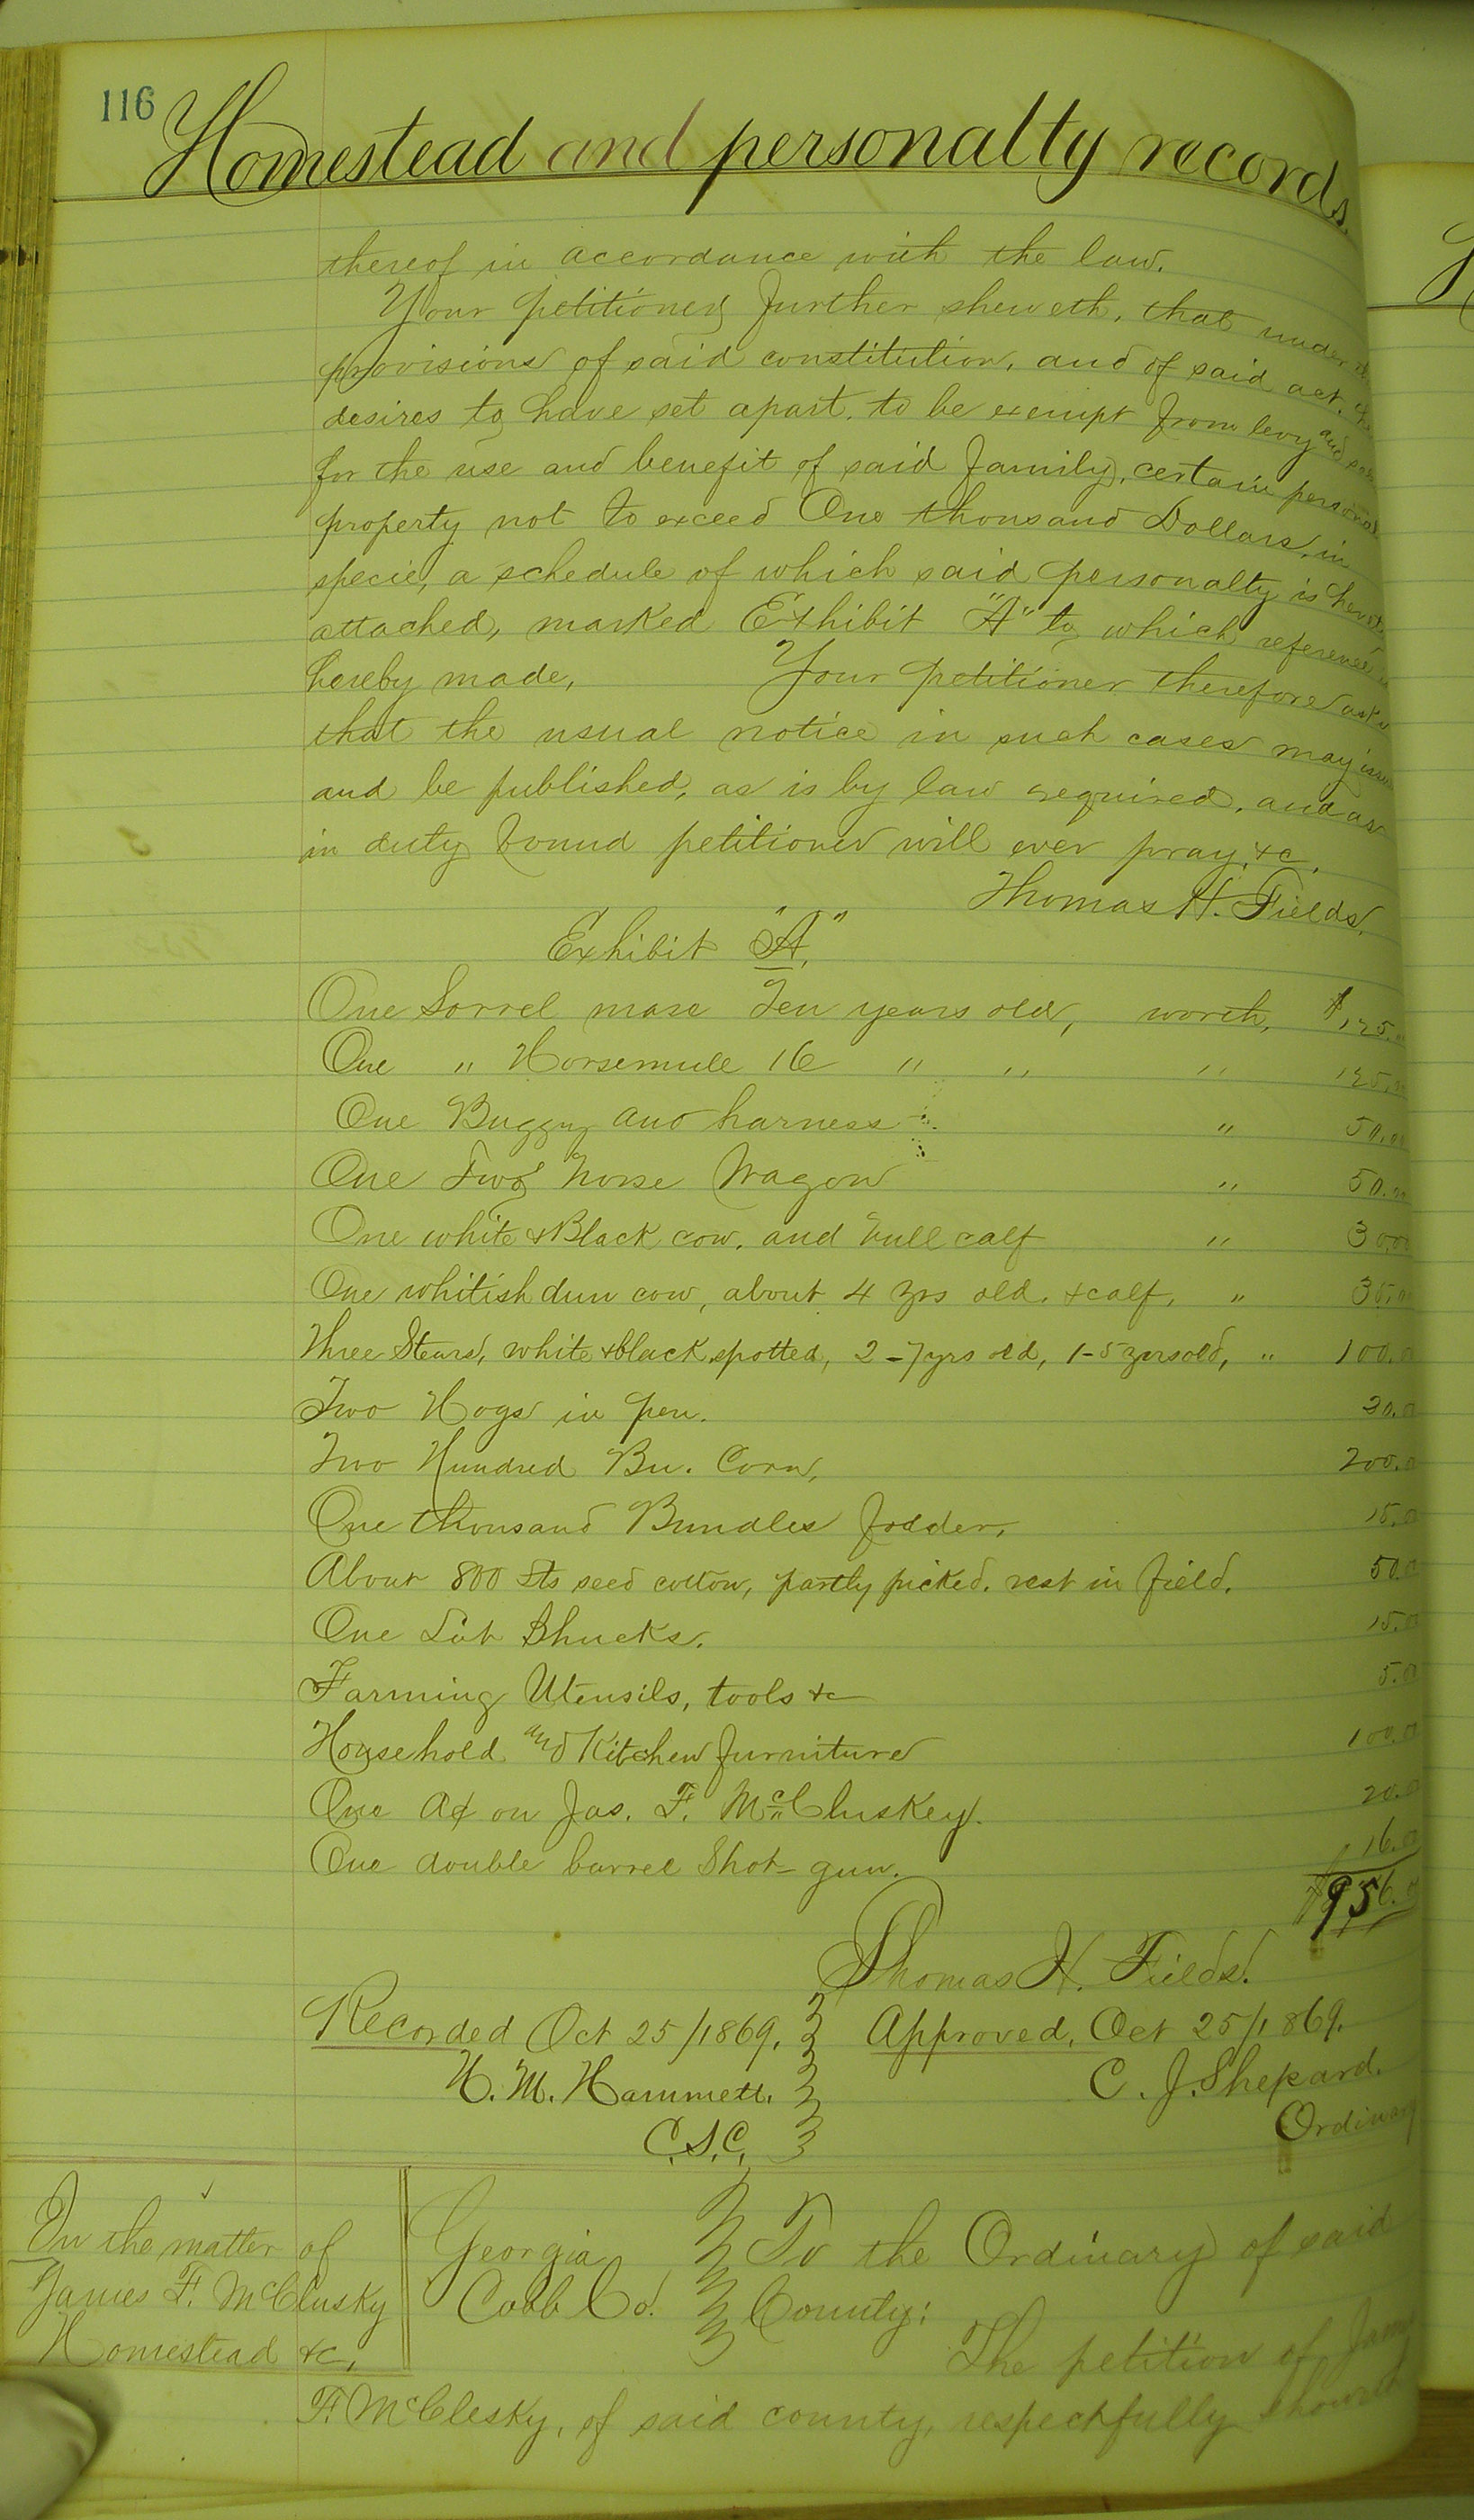 116
Homestead and personalty records.
thereof in accordance with the law.
Your petitioner further sheweth, that under
provisions of said constitution, and of said act,
desires to have set apart, to be exempt from levy and
for the use and benefit of said family, certain personal
property not to exceed One thousand Dollars, in
specie, a schedule of which said personalty is
attached, marked Exhibit "A" to which reference
hereby made, Your petitioner therefore asks
that the usual notice in such cases may issue
and be published, as is by law required, and as
in duty bound petitioner will ever pray, &c.
Thomas H. Fields.
Exhibit "A."
One Sorrel mare Ten years old, worth, $125.00
One " Horsemule 16 " " " 125.00
One Buggy and harness " 50.00
One Two horse Wagon " 50.00
One white & Black cow, and bull calf " 30.00
One whitish dun cow, about 4 yrs old, & calf, "
Three Stears, white & black spotted, 2-7 yrs old, 1-5 yrs old, " 100.0
Two Hogs in pen. 30.0
Two Hundred Bu. Corn, 200.0
One thousand Bundles fodder, 15.0
About 800 lbs seed cotton, partly picked, rest in field. 50.0
One Lot Shucks. 15.0
Farming Utensils, tools &c 5.0
Household and Kitchen furniture 100.0
One Act on Jas. F. McCluskey. 20.0
One double barrel Shot-gun. 16.0
$956.0
Thomas H. Fields.
Recorded Oct 25/1869. Approved, Oct 25/1869.
H. M. Hammett. C. J. Shepard.
C.S.C. Ordinary
In the matter of
James F. McClusky
Homestead &c.
Georgia To the Ordinary of said
Cobb Co. County:
The petition of
F. McClesky, of said county, respectfully